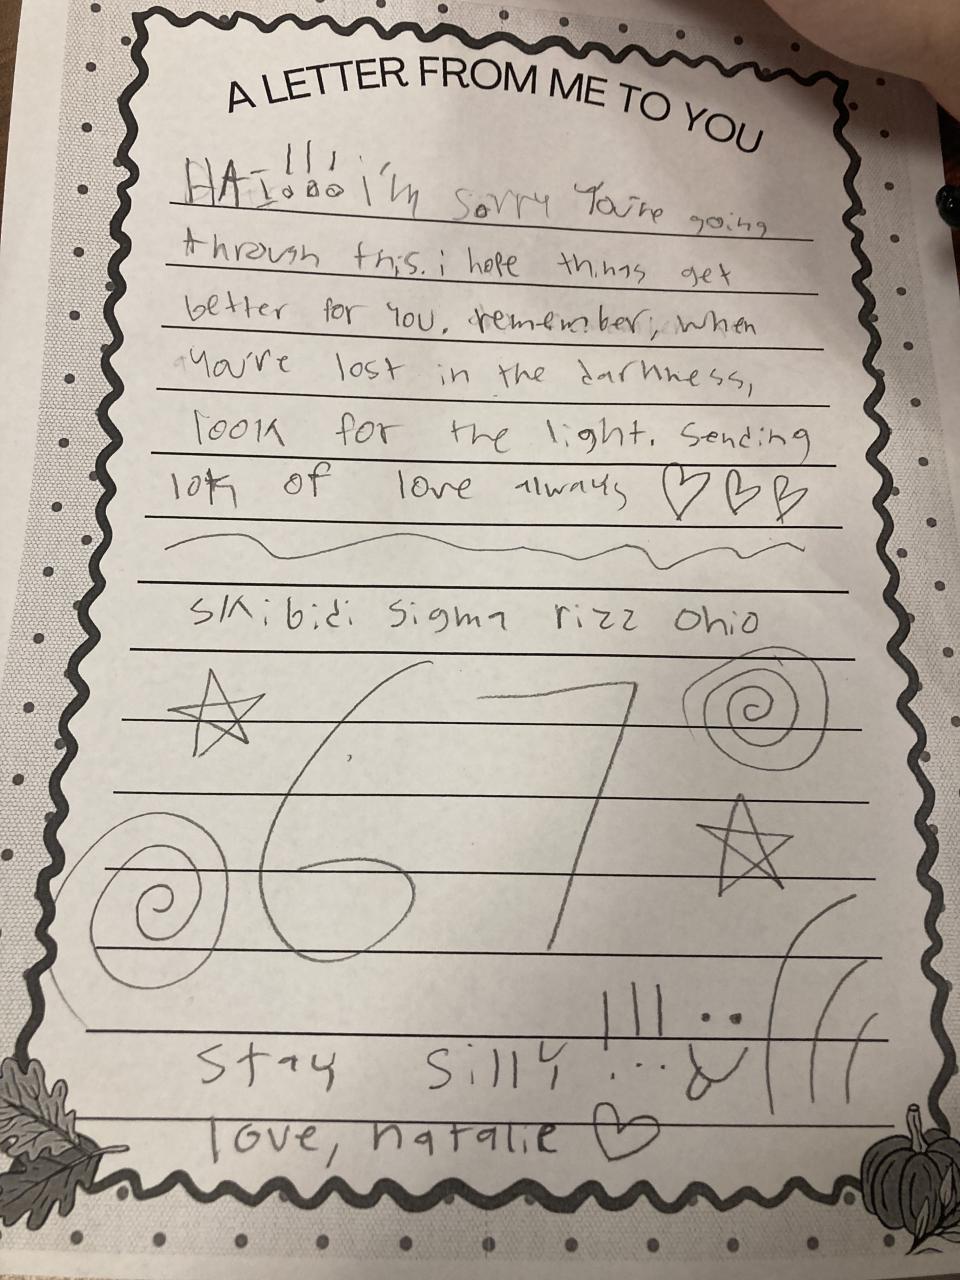 A LETTER FROM ME TO YOU
HAI!!! i'm sorry You're going
through this. i hope things get
better for you. remember, when
you're lost in the darkness,
look for the light. Sending
lots of love always ♡♡♡
skibidi sigma rizz Ohio
67
stay silly !!!
love, natalie ♡